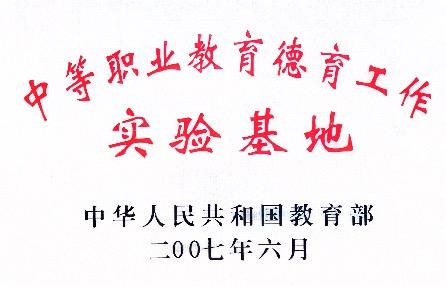 中等职业教育德育工作
实验基地
中华人民共和国教育部
二00七年六月